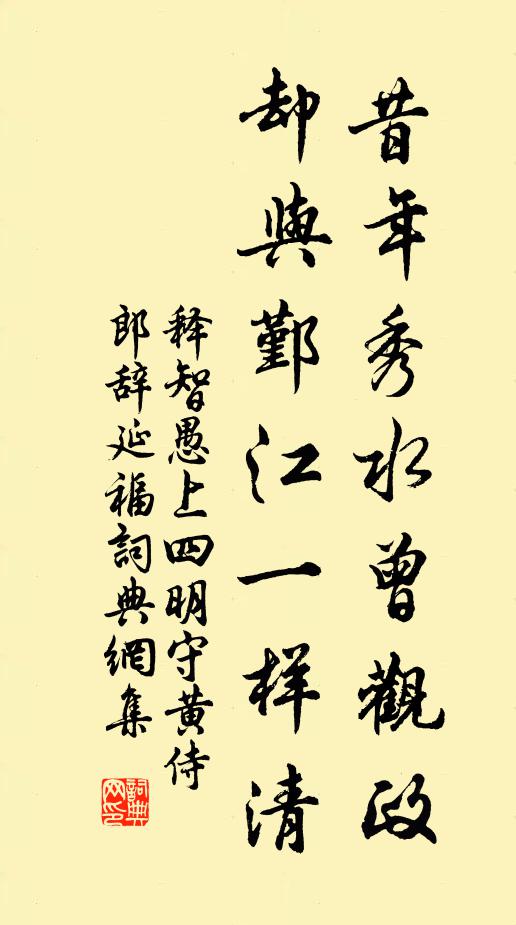 昔年秀水曾觀政
却與鄞江一样清
释智愚上四明守黄侍
郎辞延福詞典網集
詞典
网印